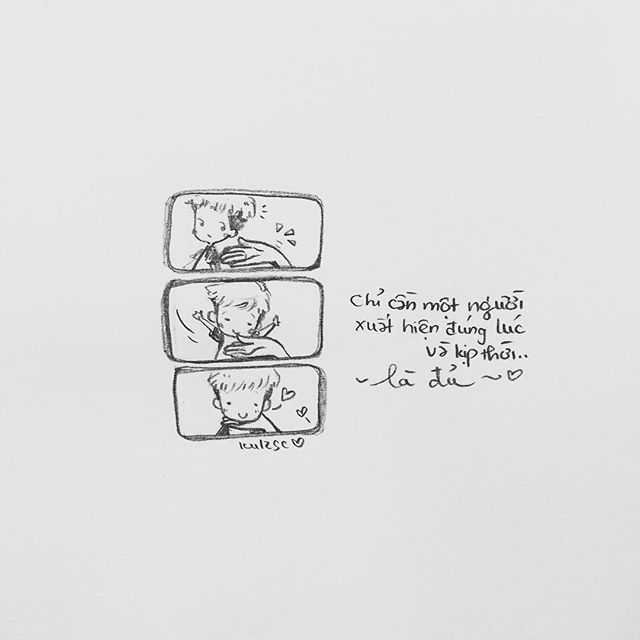 Chỉ cần một người
xuất hiện đúng lúc
và kịp thời..
~ là đủ ~ ♡